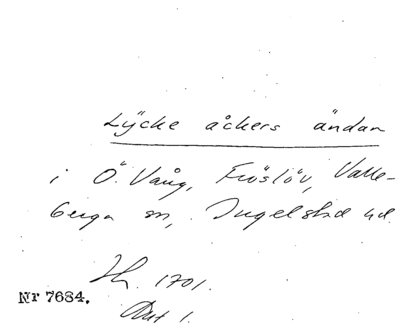 Lÿcke åckers ändan
i Ö. Vång, Fröslöv, Valle-
berga sn, Ingelstad hd.
Jb. 1701.
Nr 7684.
Akt 1.